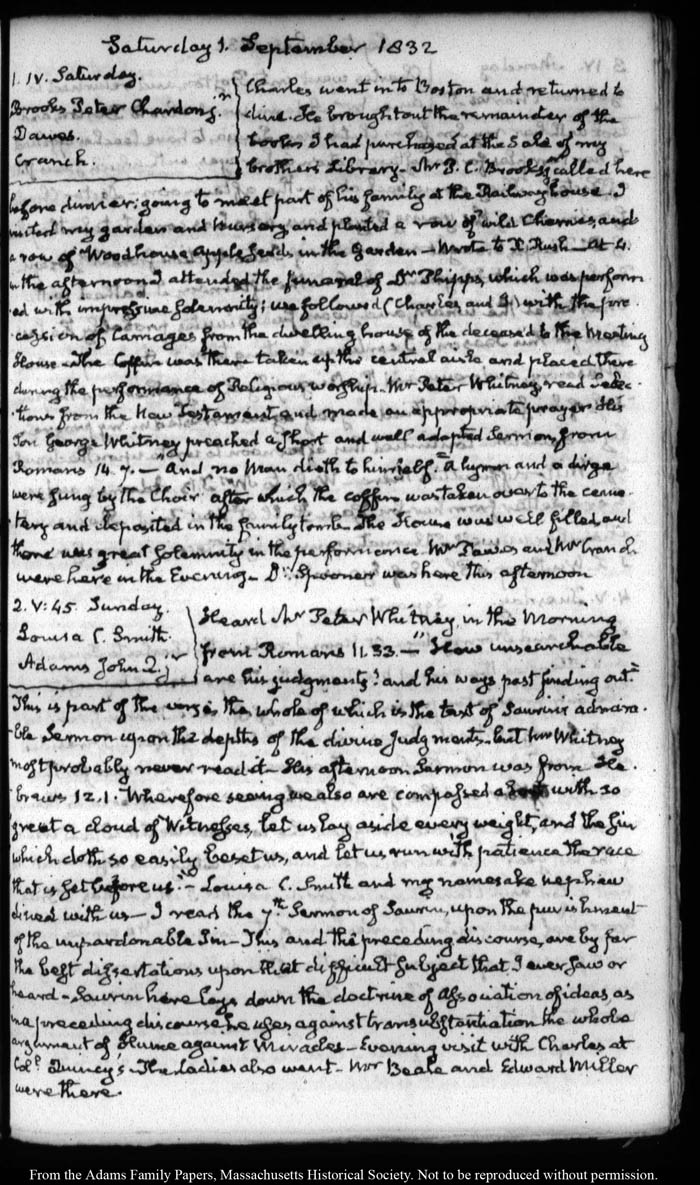 Saturday 1. September 1832
1. IV. Saturday.
Brooks Peter Chardon jr
Dawes.
Cranch.
Charles went in to Boston and returned to
dine. He brought out the remainder of the
books I had purchased at the Sale of my
brothers Library - Mr P. C. Brooks jr called here
before dinner; going to meet part of his family at the Railway house. I
visited my garden and Nursery, and planted a row of wild Cherries, and
a row of Woodhouse apple seeds in the Garden - Wrote to R Rush - At 4.
in the afternoon I attended the funeral of Dr Phipps, which was perform
ed with impressive solemnity; we followed (Charles and I) with the pro
cession of Carriages from the dwelling house of the deceased to the Meeting
House - The Coffin was there taken up the central aisle and placed there
during the performance of Religious worship. Mr Peter Whitney, read selec
tions from the New Testament, and made an appropriate prayer His
Son George Whitney preached a short and well adapted Sermon, from
Romans 14. 7. - "And no Man dieth to himself." A hymn and a dirge
were sung by the Choir after which the coffin was taken over to the ceme
tery and deposited in the family tomb - The House was well filled, and
there was great solemnity in the performance. Mr Dawes and Mr Cranch
were here in the Evening - Dr Spooner was here this afternoon
2. V:45. Sunday.
Louisa C. Smith
Adams John Q. jr
Heard Mr Peter Whitney, in the Morning
from Romans 11. 33. - "How unsearchable
are his judgments! and his ways past finding out."
This is part of the verse, the whole of which is the text of Saurin's admira
ble Sermon upon the depths of the divine Judgments - but Mr Whitney
most probably never read it - His afternoon Sermon was from He
brews 12. 1. "Wherefore seeing we also are compassed about with so
great a cloud of Witnesses, let us lay aside every weight, and the sin
which doth so easily beset us, and let us run with patience the race
that is set before us." - Louisa C. Smith and my namesake nephew
dined with us - I read the 7th Sermon of Saurin, upon the punishment
of the unpardonable Sin - This and the preceding discourse, are by far
the best dissertations upon that difficult subject that I ever saw or
heard - Saurin here lays down the doctrine of Association of ideas, as
in a preceding discourse he uses against transubstantiation the whole
argument of Hume against Miracles - Evening visit with Charles, at
Coll Quincy's - The Ladies also went - Mr Beale and Edward Miller
were there.
From the Adams Family Papers, Massachusetts Historical Society. Not to be reproduced without permission.